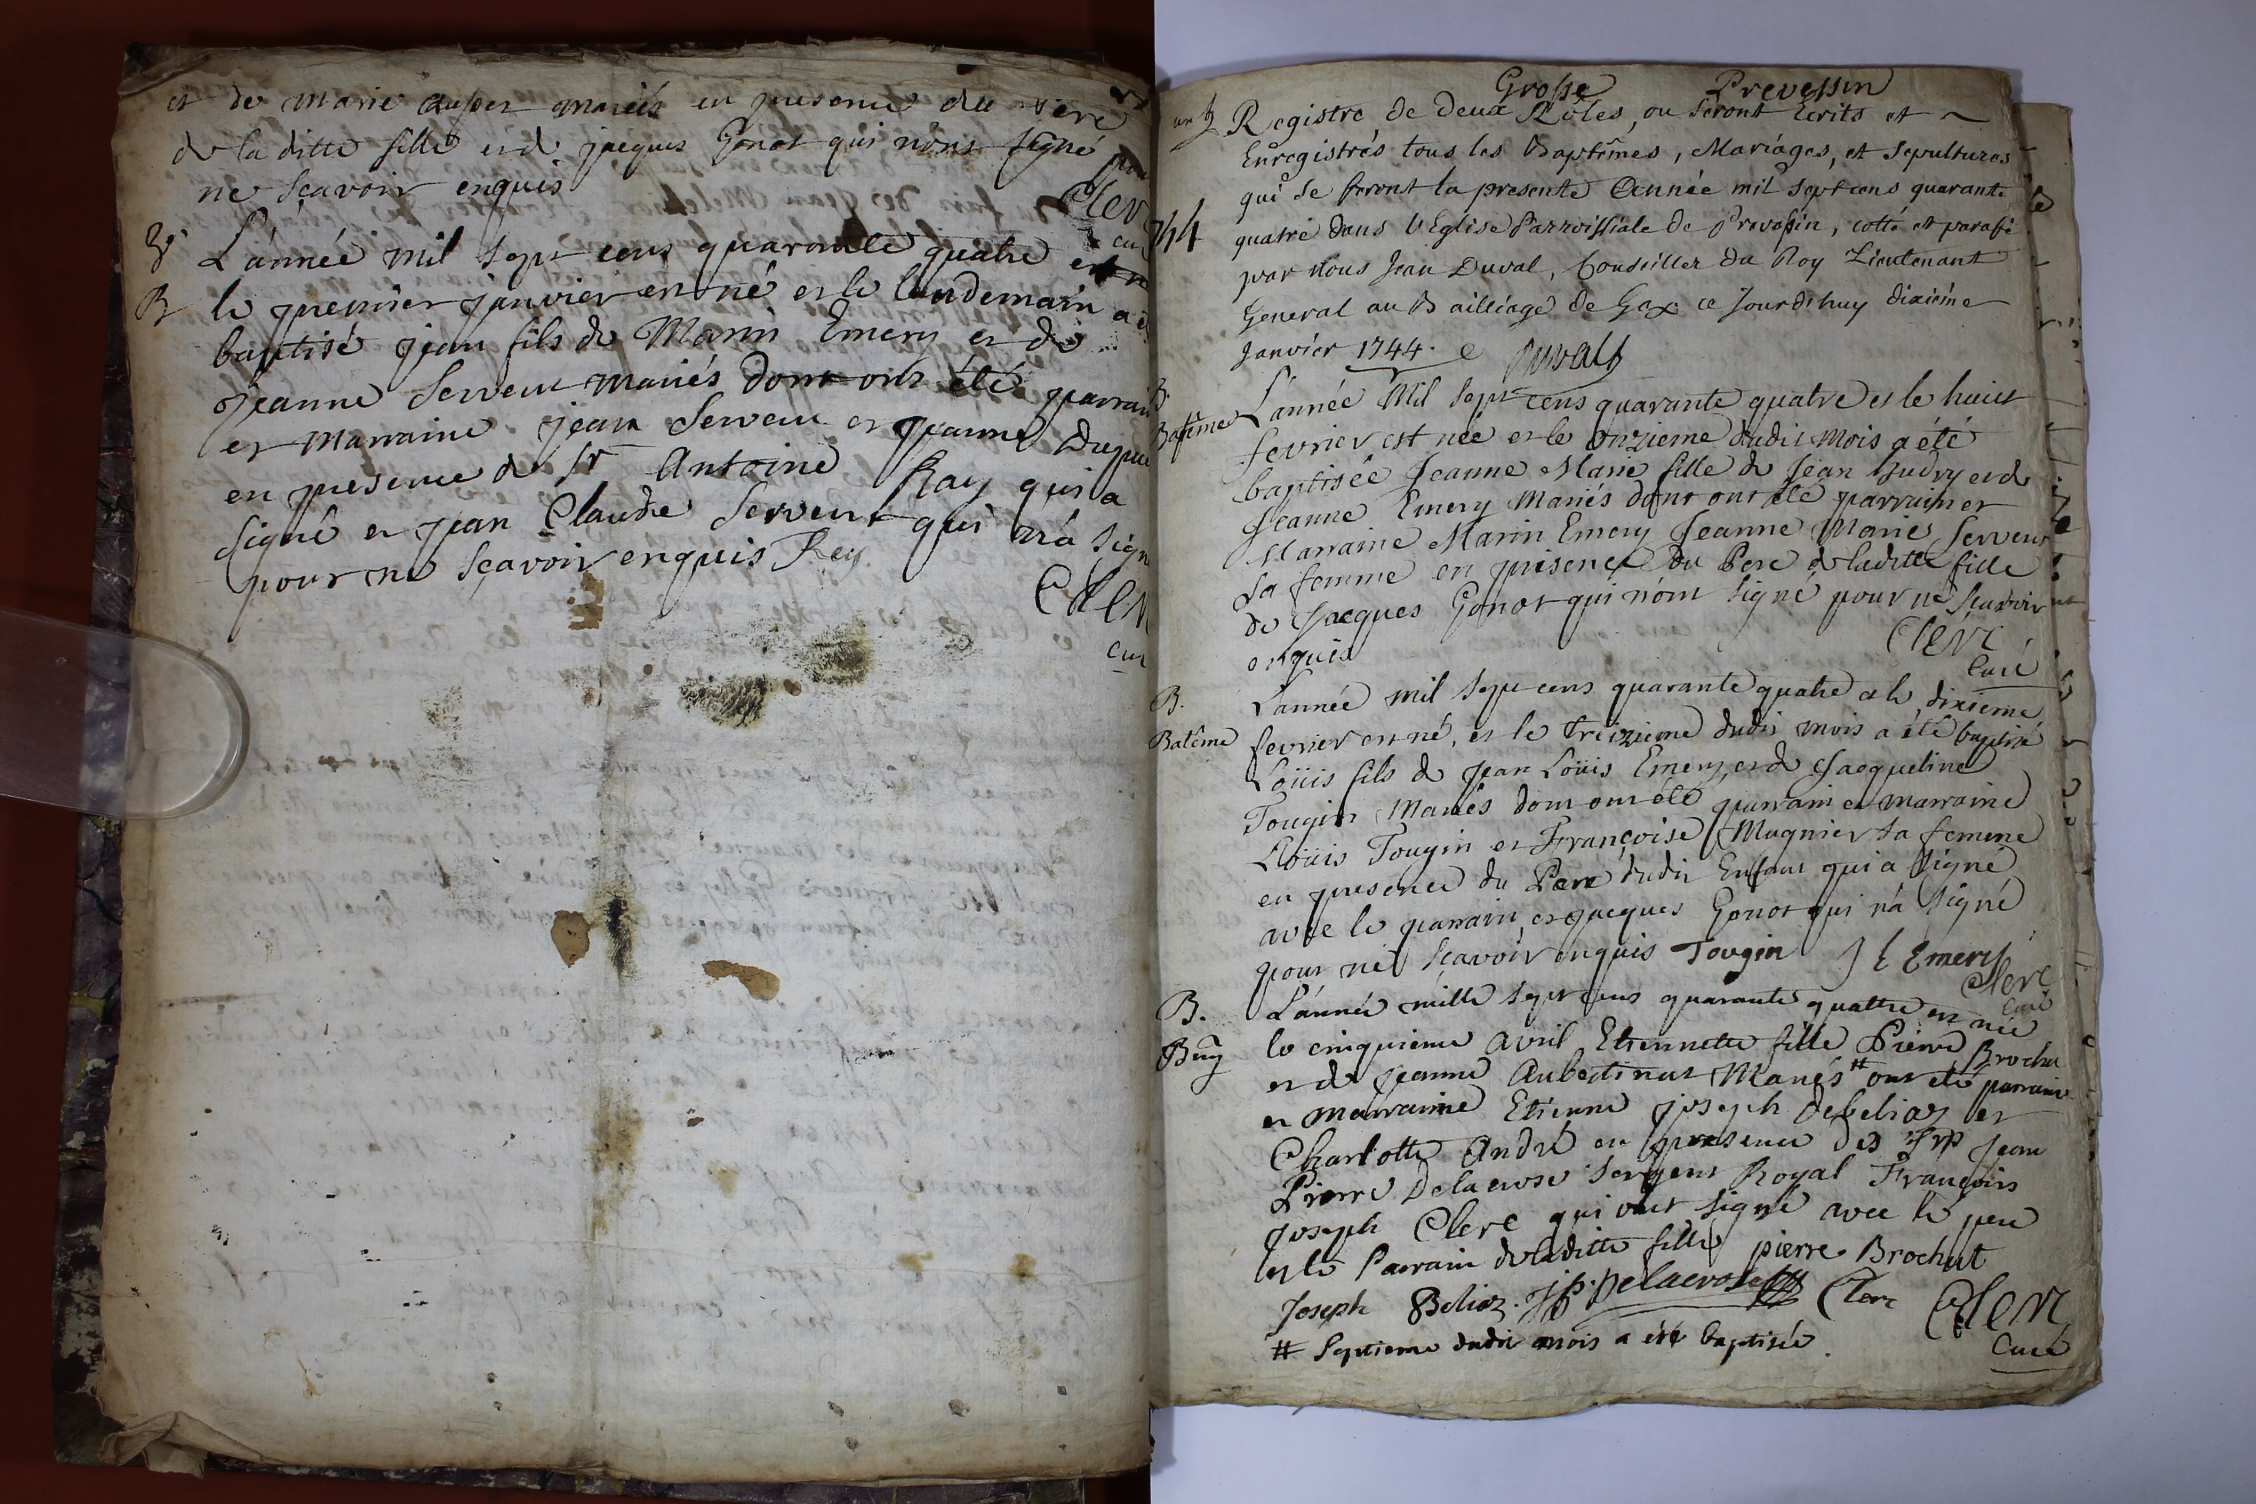 et de marie mariés en presence du Pere
de la ditte fille et de jacques Gonot qui n'ont signé pour
ne sçavoir enquis Clerc
curé
L'année mil sept cens quarante quatre
B le premier janvier est né et le lendemain a été
baptisé jean fils de Marin Emery et de
jeanne Servent mariés dont ont été parrain
et marraine jean Servent et jeanne
en presence de Sr Antoine Ray qui a
signé et jean Claude Servent qui n'a signé
pour ne sçavoir enquis Rey
Clerc
curé
Grosse Prevessin
Registre de deux Rôles, ou seront Ecrits et
Enregistrés tous les Baptêmes, Mariages, et Sepultures
qui se feront la presente Année mil sept cens quarante
744 quatre dans l'Eglise Parroissiale de Prevessin, cotté et parafé
par nous Jean Duval, Conseiller du Roy Lieutenant
General au Bailliage de Gex ce Jourdhuy dixiéme
Janvier 1744. Duval
Batême L'année Mil sept cens quarante quatre et le huict
fevrier est née et le onzieme dudit mois a été
baptisée Jeanne Marie fille de Jean Gudry et de
Jeanne Emery Mariés dont ont été parrain et
Marraine Marin Emery Jeanne Marie Servent
sa femme en presence du Pere de laditte fille
de Jacques Gonot qui n'ont signé pour ne sçavoir
enquis Clerc
Curé
B. L'année mil sept cens quarante quatre et le dixieme
Batême fevrier est né, et le treizieme dudit mois a été baptisé
Loüis fils de Jean Loüis Emery et de Jacqueline
Tougin Mariés dont ont été parrain et marraine
Loüis Tougin et Françoise Mugnier sa femme
en presence du Pere dudit Enfant qui a signé
avec le parrain, et jacques Gonot qui n'a signé
pour ne sçavoir enquis Tougin J L Emery
Clerc
Curé
B. L'année mille sept cens quarante quattre est née
le cinquieme avril Etiennette fille Pierre Brochu
et de jeanne Aubertinat Mariés # ont été parrain
et marraine Etienne joseph debelias et
Charlotte André en presence des Srs Jean
Pierre Delacrose sergent Royal François
joseph Clerc qui ont signé avec le pere
et le Parrain de laditte fille pierre Brochut
Joseph Belias. JP. Delacrose Clerc Clerc
# Septieme dudit mois a été baptisée. Curé